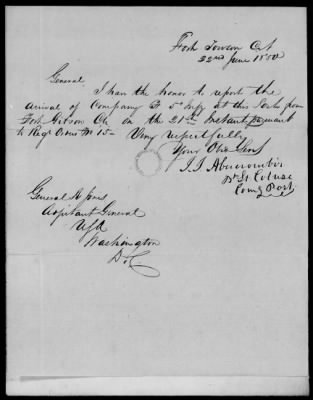 Fort Towson C.N.
22nd June 1850
General
I have the honor to report the
arrival of Company F 5th Infy at this Post from
Fort Gibson C.N. on the 21st Instant pursuant
to Regt Orders No 15 - Very respectfully
Your Obt Servt
J J Abercrombie
Bt Lt Col USA
Comg Post
General R Jones
Adjutant General
USA
Washington
D.C.